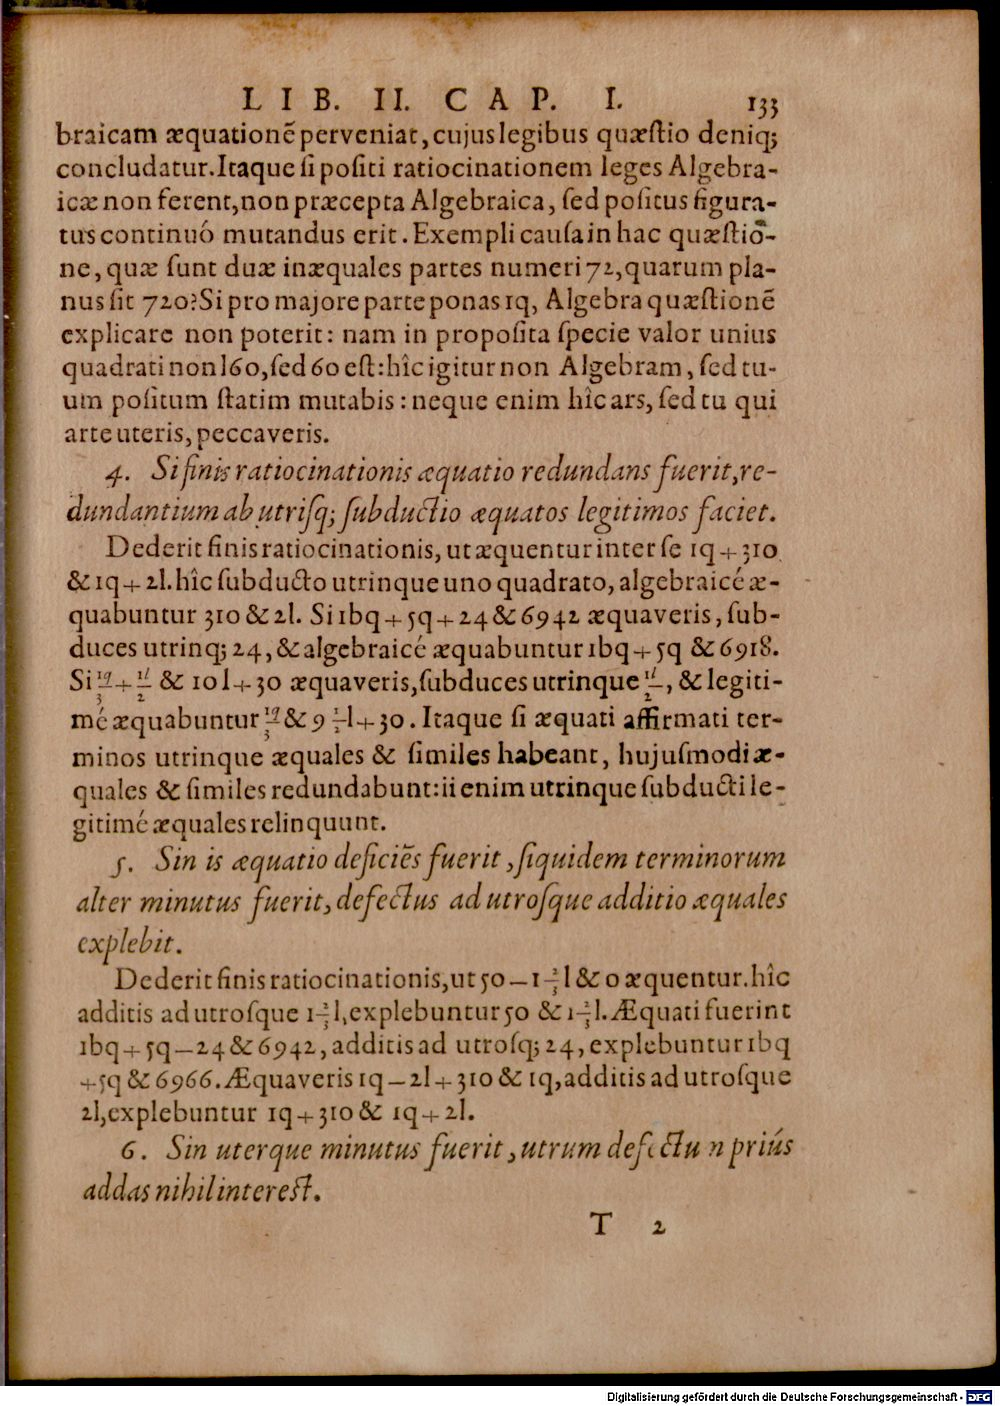 LIB. II. CAP. I. 133
braicam æquationẽ perveniat, cujus legibus quæſtio deniq;
concludatur. Itaque ſi poſiti ratiocinationem leges Algebra-
icæ non ferent, non præcepta Algebraica, ſed poſitus figura-
tus continuó mutandus erit. Exempli cauſa in hac quæſtio-
ne, quæ ſunt duæ inæquales partes numeri 72, quarum pla-
nus ſit 720? Si pro majore parte ponas 1q, Algebra quæſtionẽ
explicare non poterit: nam in propoſita ſpecie valor unius
quadrati non l60, ſed 60 eſt: hîc igitur non Algebram, ſed tu-
um poſitum ſtatim mutabis: neque enim hîc ars, ſed tu qui
arte uteris, peccaveris.
4. Si finis ratiocinationis æquatio redundans fuerit, re-
dundantium ab utriſq; ſubductio æquatos legitimos faciet.
Dederit finis ratiocinationis, ut æquentur inter ſe 1q+310
& 1q+2l. hîc ſubducto utrinque uno quadrato, algebraicé æ-
quabuntur 310 & 2l. Si 1bq+5q+24 & 6942 æquaveris, ſub-
duces utrinq; 24, & algebraicé æquabuntur 1bq+5q & 6918.
Si 1q/3+1l/2 & 10l+30 æquaveris, ſubduces utrinque 1l/2, & legiti-
mé æquabuntur 1q/3 & 9 1/2 l+30. Itaque ſi æquati affirmati ter-
minos utrinque æquales & ſimiles habeant, hujuſmodi æ-
quales & ſimiles redundabunt: ii enim utrinque ſubducti le-
gitimé æquales relinquunt.
5. Sin is æquatio deficiẽs fuerit, ſiquidem terminorum
alter minutus fuerit, defectus ad utroſque additio æquales
explebit.
Dederit finis ratiocinationis, ut 50—1 2/3 l & 0 æquentur. hîc
additis ad utroſque 1 2/3 l, explebuntur 50 & 1 2/3 l. Æquati fuerint
1bq+5q—24 & 6942, additis ad utroſq; 24, explebuntur 1bq
+5q & 6966. Æquaveris 1q—2l+310 & 1q, additis ad utroſque
2l, explebuntur 1q+310 & 1q+2l.
6. Sin uterque minutus fuerit, utrum defectu n priús
addas nihil intereſt.
T 2
Digitalisierung gefördert durch die Deutsche Forschungsgemeinschaft - DFG